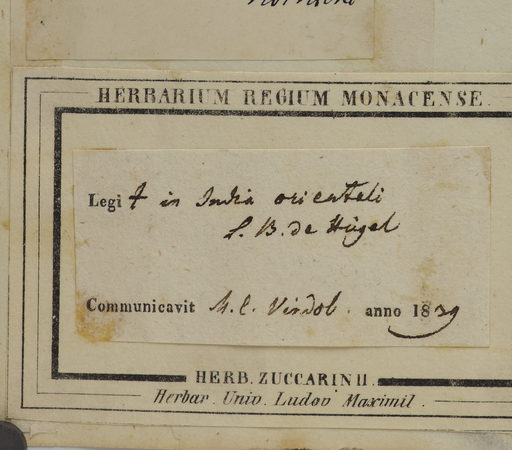 HERBARIUM REGIUM MONACENSE.
Legit in India orientali
L. B. de Hügel
Communicavit M. C. Vindob. anno 1839
HERB. ZUCCARINII.
Herbar. Univ. Ludov Maximil.